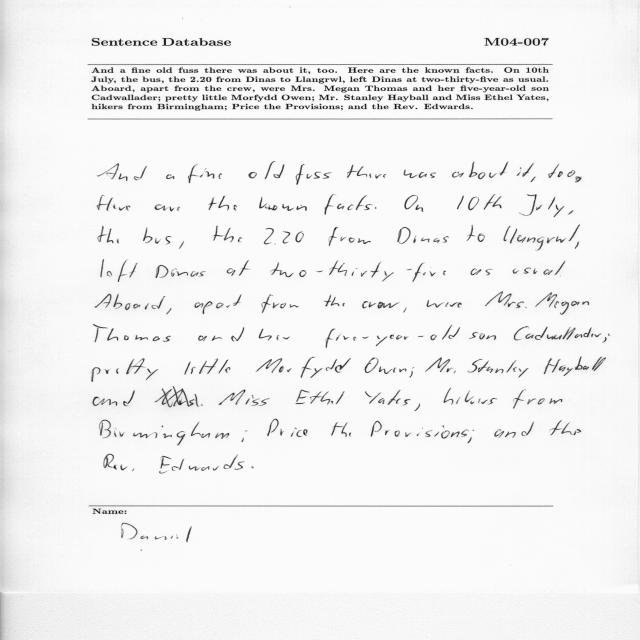 Sentence Database M04-007
And a fine old fuss there was about it, too. Here are the known facts. On 10th
July, the bus, the 2.20 from Dinas to Llangrwl, left Dinas at two-thirty-five as usual.
Aboard, apart from the crew, were Mrs. Megan Thomas and her five-year-old son
Cadwallader; pretty little Morfydd Owen; Mr. Stanley Hayball and Miss Ethel Yates,
hikers from Birmingham; Price the Provisions; and the Rev. Edwards.
And a fine old fuss there was about it, too.
Here are the known facts. On 10th July,
the bus, the 2.20 from Dinas to Llangrwl,
left Dinas at two-thirty-five as usual
Aboard, apart from the crew, were Mrs. Megan
Thomas and her five-year-old son Cadwallader;
pretty little Morfydd Owen; Mr. Stanley Hayball
and Miss Ethel Yates, hikers from
Birmingham; Price the Provisions; and the
Rev. Edwards.
Name:
Daniel